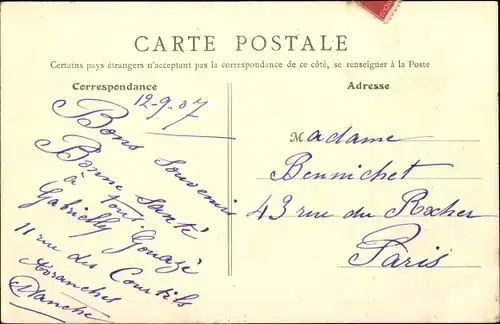 CARTE POSTALE
Certains pays étrangers n'acceptant pas la correspondance de ce côté, se renseigner à la Poste
Correspondance
12-9-07
Bons Souvenirs
Bonne Santé
à tous
Gabrielly Gonazé
11 rue des Courtils
Avranches
Manche
Adresse
Madame
Bennichet
43 rue du Rocher
Paris